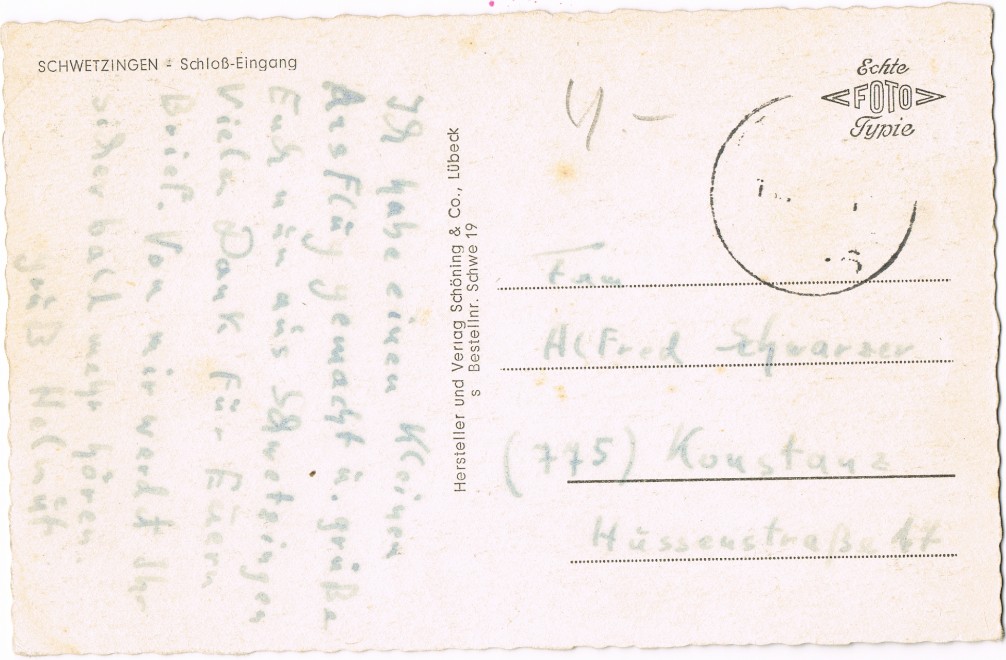 SCHWETZINGEN - Schloß-Eingang
Ich habe einen Kleinen
Ausflüg gemacht ü. grüße
Euch nün aüs Schwetzingen
Vielen Dank für Eüern
Brief. Von mir werdet Ihr
sicher bald mehr hören.
Grüß Helmüt
Hersteller und Verlag Schöning & Co., Lübeck
s Bestellnr. Schwe 19
Echte
FOTO
Typie
4.-
Fam
Alfred Schwarzer
(775) Konstanz
Hüssenstraße 17